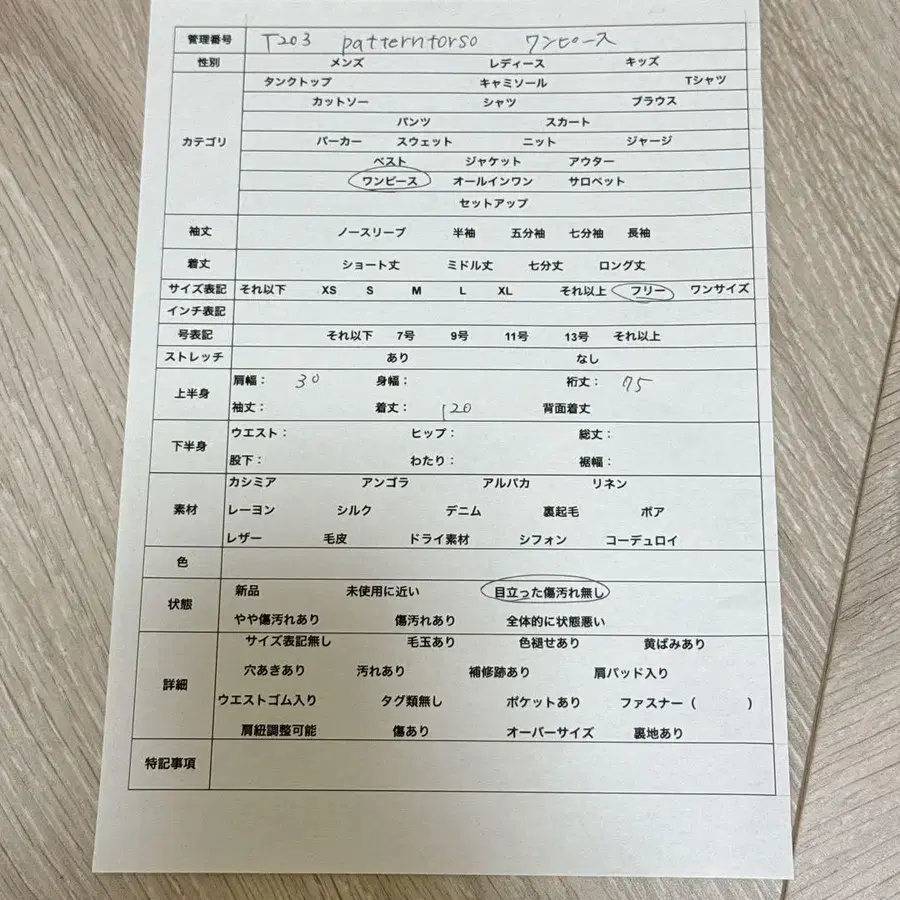 管理番号 T203 patterntorso ワンピース
性別 メンズ レディース キッズ
タンクトップ キャミソール Tシャツ
カットソー シャツ ブラウス
パンツ スカート
カテゴリ パーカー スウェット ニット ジャージ
ベスト ジャケット アウター
ワンピース オールインワン サロペット
セットアップ
袖丈 ノースリーブ 半袖 五分袖 七分袖 長袖
着丈 ショート丈 ミドル丈 七分丈 ロング丈
サイズ表記 それ以下 XS S M L XL それ以上 フリー ワンサイズ
インチ表記
号表記 それ以下 7号 9号 11号 13号 それ以上
ストレッチ あり なし
上半身 肩幅： 30 身幅： 裄丈： 75
袖丈： 着丈： 120 背面着丈
下半身 ウエスト： ヒップ： 総丈：
股下： わたり： 裾幅：
カシミア アンゴラ アルパカ リネン
素材 レーヨン シルク デニム 裏起毛 ボア
レザー 毛皮 ドライ素材 シフォン コーデュロイ
色
状態 新品 未使用に近い 目立った傷汚れ無し
やや傷汚れあり 傷汚れあり 全体的に状態悪い
サイズ表記無し 毛玉あり 色褪せあり 黄ばみあり
穴あきあり 汚れあり 補修跡あり 肩パッド入り
詳細 ウエストゴム入り タグ類無し ポケットあり ファスナー（ ）
肩紐調整可能 傷あり オーバーサイズ 裏地あり
特記事項